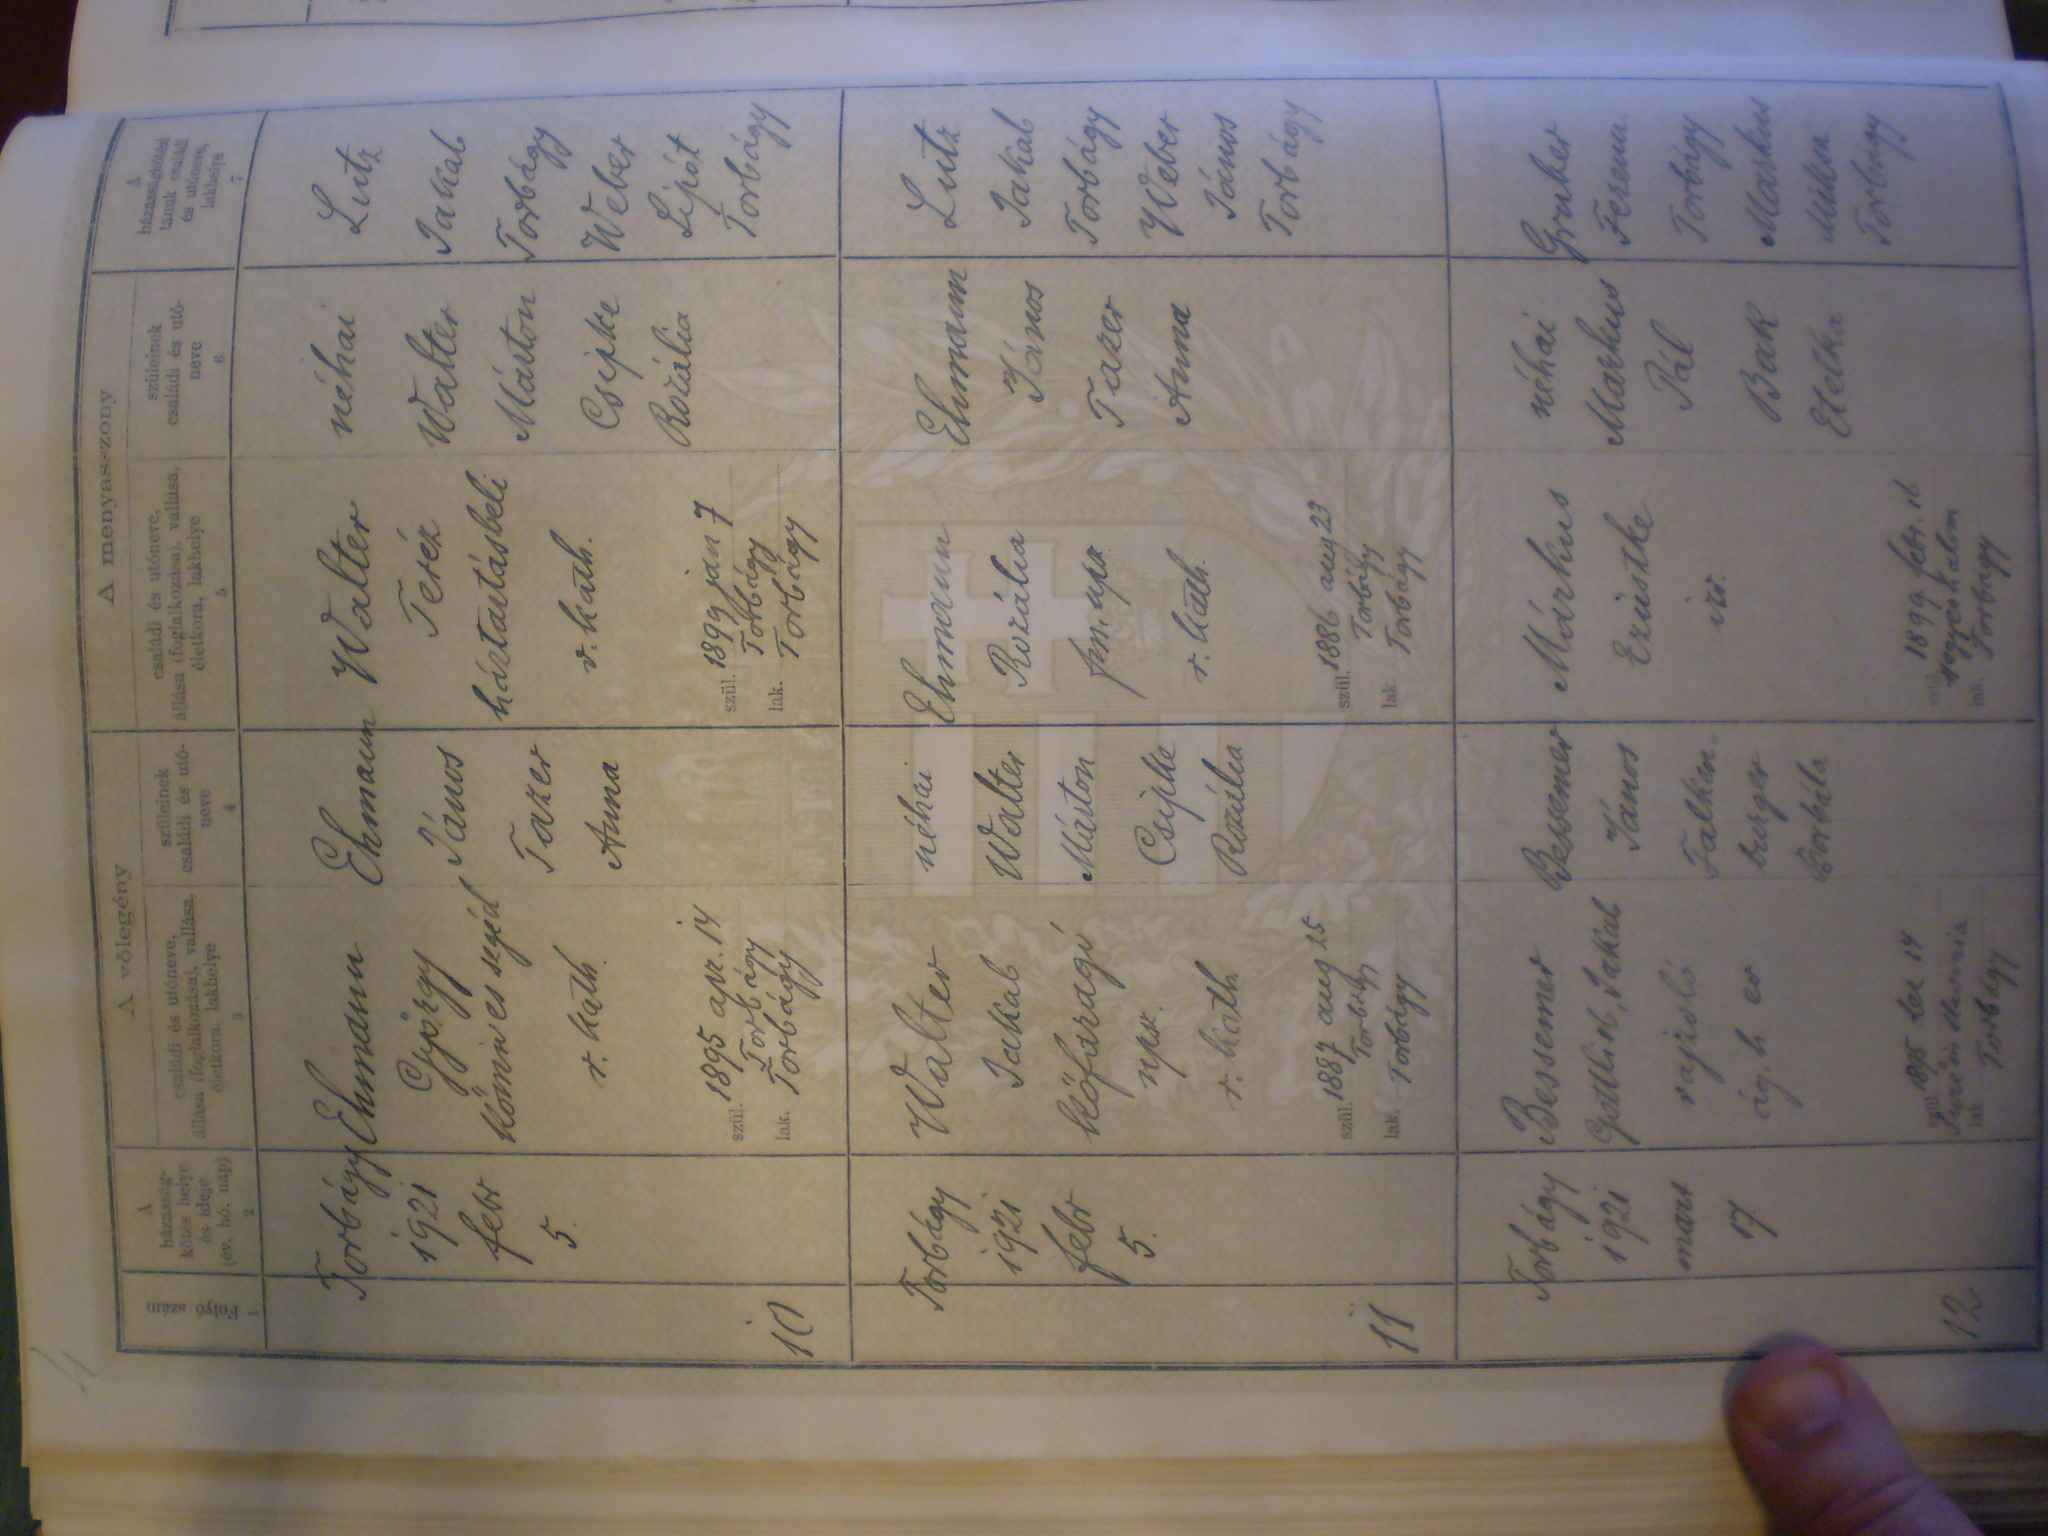 4
A vőlegény
A menyasszony
Folyó szám
A
házasság-
kötés helye
és ideje
(év, hó, nap)
családi és utóneve,
állása (foglalkozása), vallása,
életkora, lakhelye
szüleinek
családi és utó-
neve
családi és utóneve,
állása (foglalkozása), vallása,
életkora, lakhelye
szüleinek
családi és utó-
neve
A
házasságkötési
tanuk családi
és utóneve,
lakhelye
1
2
3
4
5
6
7
10
Torbágy
1921
febr
5.
Ehmann
György
kőmives segéd
r. kath.
szül. 1895 apr. 14
Torbágy
lak. Torbágy
Ehmann
János
Taxer
Anna
Walter
Teréz
háztartásbeli
r. kath.
szül. 1899 jan 7
Torbágy
lak. Torbágy
néhai
Walter
Márton
Csipke
Rozália
Lutz
Jakab
Torbágy
Weber
Lipót
Torbágy
11
Torbágy
1921
febr
5.
Walter
Jakab
kőfaragó
npsz.
r. kath.
szül. 1887 aug 25
Torbágy
lak. Torbágy
néhai
Walter
Márton
Csipke
Rozália
Ehmann
Rozália
r. kath.
szül. 1886 aug 23
Torbágy
lak. Torbágy
Ehmann
János
Taxer
Anna
Lutz
Jakab
Torbágy
Weber
János
Torbágy
12
Torbágy
1921
mart
17.
Bessemer
Gottlieb, Jakab
rajzoló
ág. h. ev
szül. 1895 dec 14
lak. Torbágy
Bessemer
János
Falken-
burger
Borbála
Márkus
Ezüstke
izr.
szül. 1899 febr. 16
lak. Torbágy
néhai
Markus
Pál
Bak
Etelka
Gruber
Ferenc
Torbágy
Markus
Miksa
Torbágy